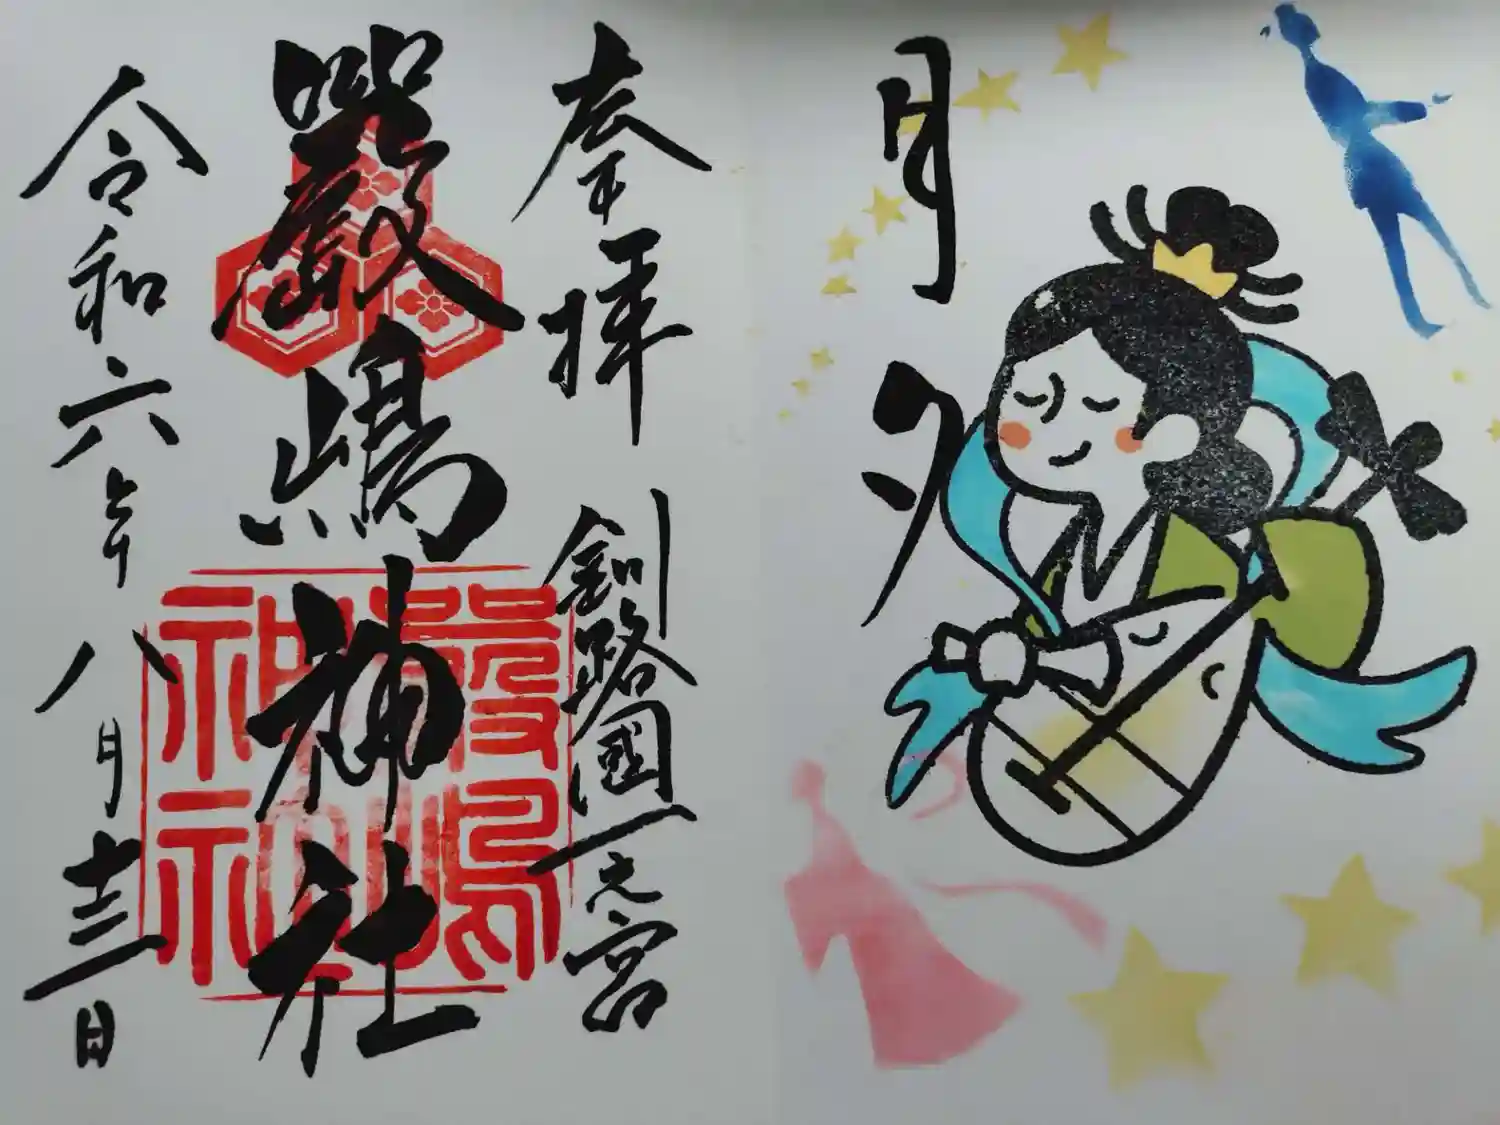 月夕
奉拝
釧路國一之宮
嚴嶋神社
令和六年八月十三日